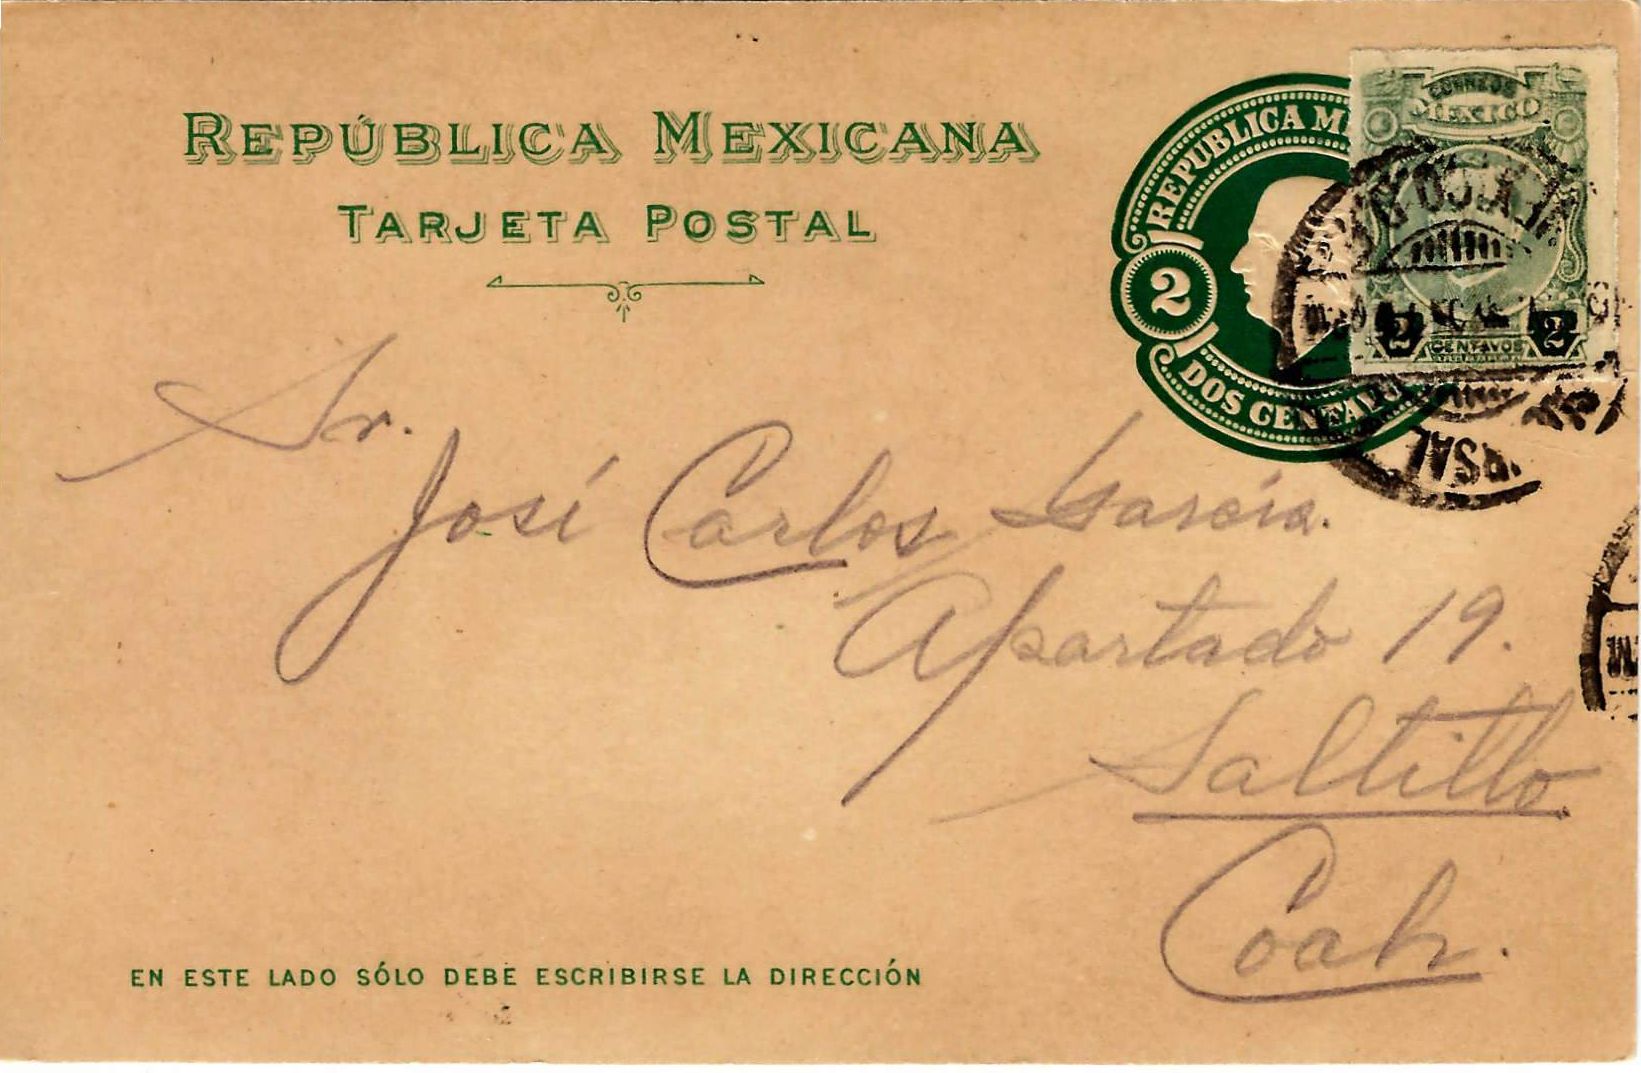 REPÚBLICA MEXICANA
TARJETA POSTAL
REPUBLICA M
2
DOS CENTAVO
CORREOS
MEXICO
2 CENTAVOS 2
Sr.
José Carlos García.
Apartado 19.
Saltillo
Coah.
EN ESTE LADO SÓLO DEBE ESCRIBIRSE LA DIRECCIÓN